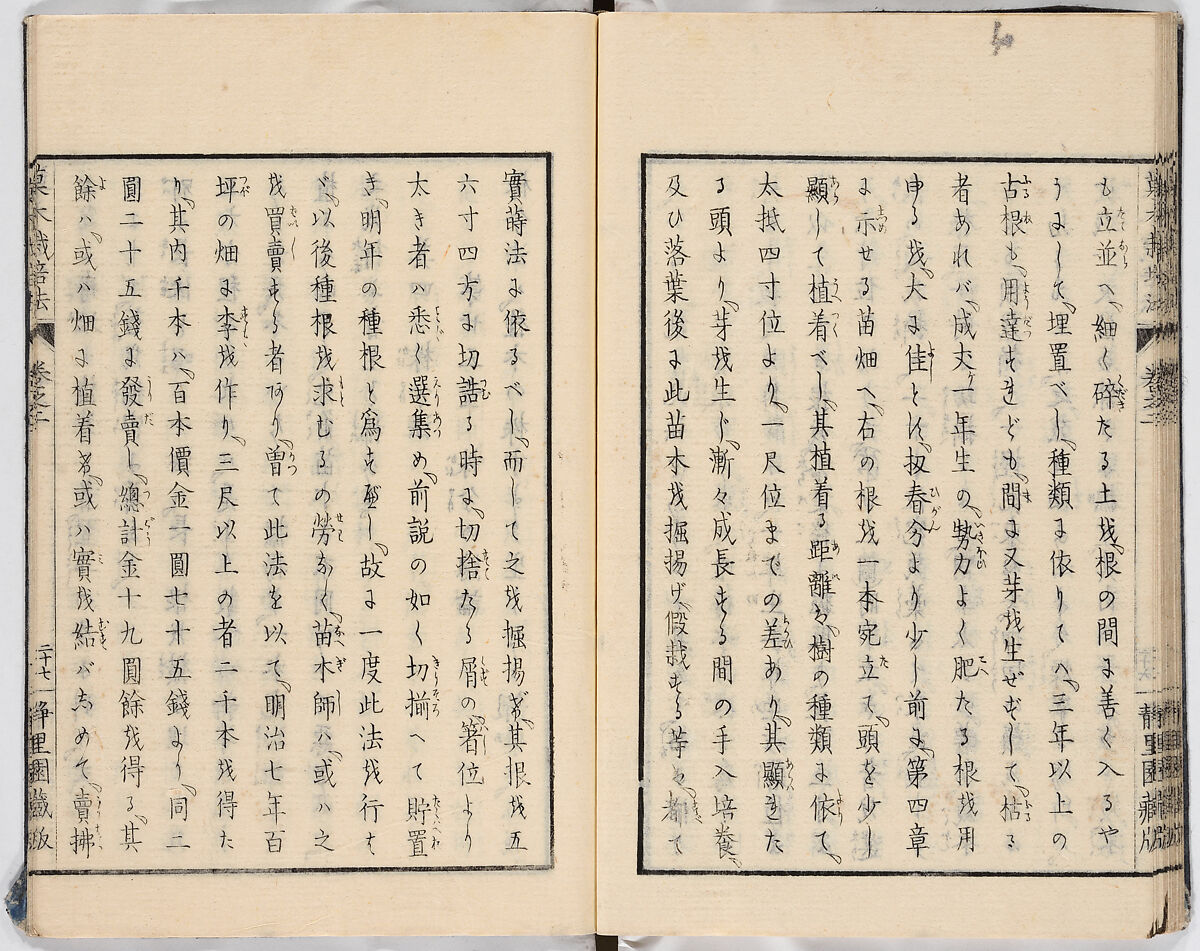 も立並へ、細く碎たる土を、根の間に善く入るや
うにして、埋置べし、種類に依りてハ、三年以上の
古根も、用達すれども、間に又芽を生ぜずして、枯る
者あれバ、成丈ケ一年生の、勢力よく肥たる根を用
申るを、大に佳とす、扨春分より少し前に、第四章
に示せる苗畑へ、右の根を一本宛立て、頭を少し
顯して植着べし、其植着る距離ハ、樹の種類に依て、
太抵四寸位より、一尺位までの差あり、其顯れた
る頭より、芽を生じ、漸々成長する間の手入培養、
及ひ落葉後に此苗木を掘揚げ、假栽する等ハ、都て
實蒔法に依るべし、而して之を掘揚げ、其根を五
六寸四方に切詰る時に、切捨たる屑の、箸位より
太き者ハ悉く選集め、前説の如く切揃へて貯置
き、明年の種根と爲すべし、故に一度此法を行へ
バ、以後種根を求むるの勞なく、苗木師ハ、或ハ之
を買賣する者あり、曽て此法を以て、明治七年百
坪の畑に李を作り、三尺以上の者二千本を得た
り、其内千本ハ、百本價金一圓七十五錢より、同二
圓二十五錢に發賣し、總計金十九圓餘を得る、其
餘ハ、或ハ畑に植着け、或ハ實を結バしめて、賣拂
菓木栽培法 卷之二 二十七 靜里園藏版
靜里園藏版